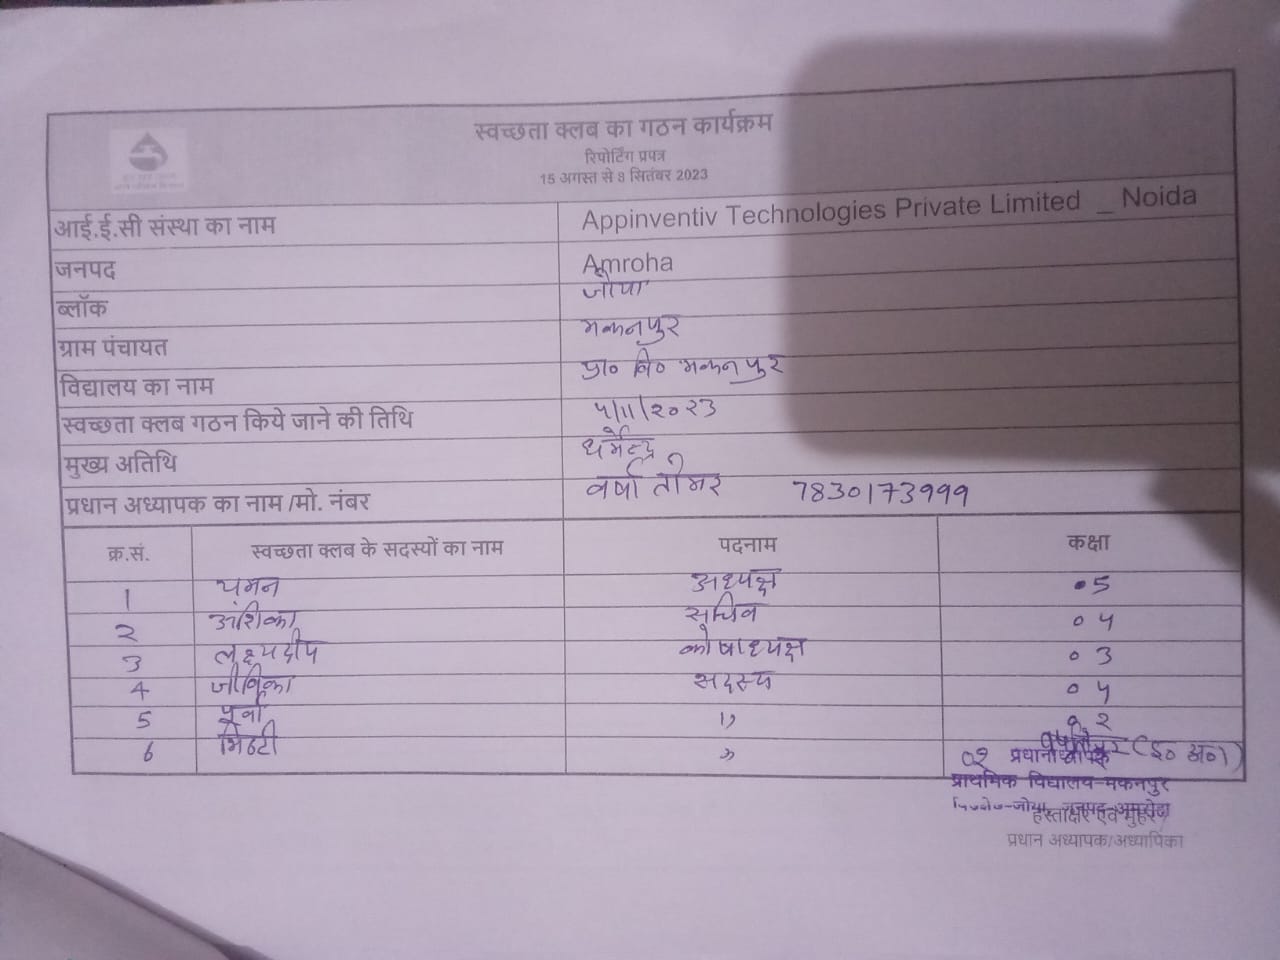 स्वच्छता क्लब का गठन कार्यक्रम
रिपोर्टिंग प्रपत्र
15 अगस्त से 8 सितंबर 2023
आई.ई.सी संस्था का नाम Appinventiv Technologies Private Limited _ Noida
जनपद Amroha
ब्लॉक जोया
ग्राम पंचायत मकनपुर
विद्यालय का नाम प्रा० वि० मकनपुर
स्वच्छता क्लब गठन किये जाने की तिथि ५/11/२०२३
मुख्य अतिथि धर्मेन्द्र
प्रधान अध्यापक का नाम /मो. नंबर वर्षा तोमर 7830173999
क्र.सं. स्वच्छता क्लब के सदस्यों का नाम पदनाम कक्षा
1 यमन अध्यक्ष ०5
2 अंशिका सचिव ०4
3 लक्ष्यदीप कोषाध्यक्ष ०3
4 जीविका सदस्य ०4
5 पूर्वा ,,
6 मिष्टी ,,
(इ० अ०)
प्रधानाध्यापक
प्राथमिक विद्यालय-मकनपुर
जोया जनपद-अमरोहा
हस्ताक्षर एवं मुहर
प्रधान अध्यापक/अध्यापिका